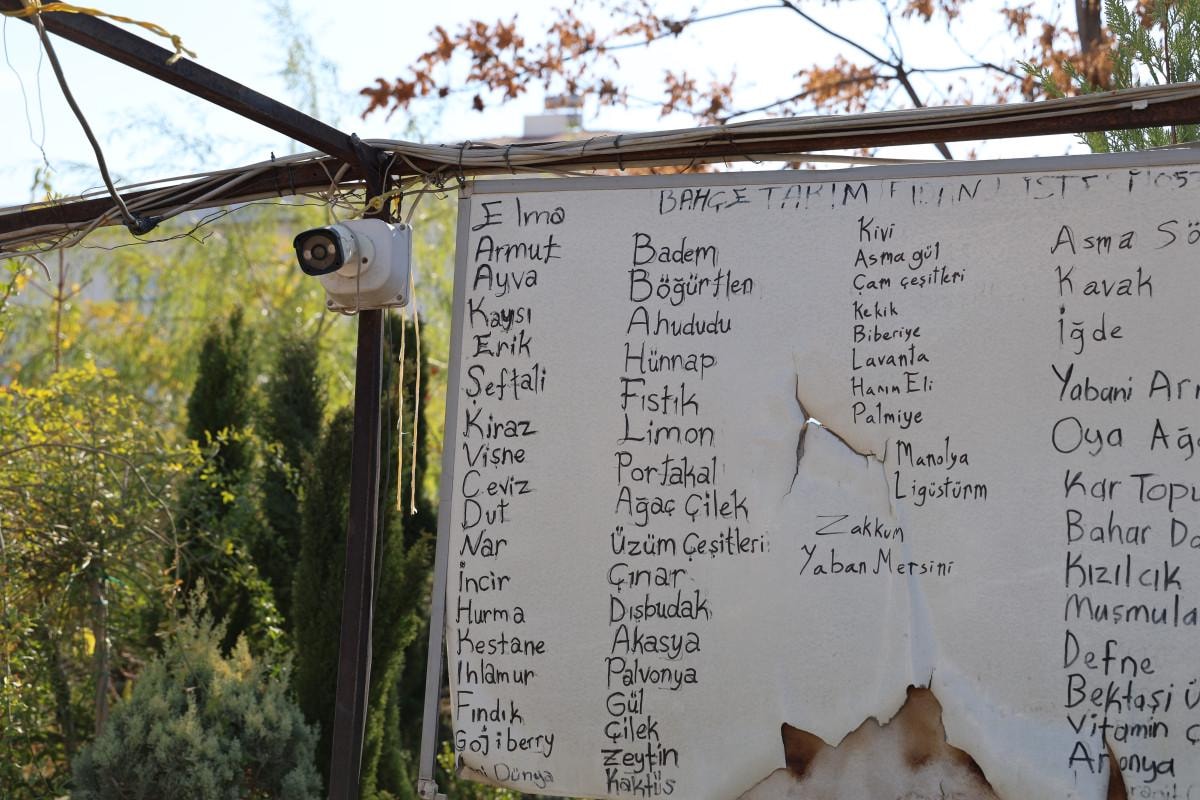 BAHÇE TAKIM
Elma
Armut
Ayva
Kaysı
Erik
Şeftali
Kiraz
Vişne
Ceviz
Dut
Nar
İncir
Hurma
Kestane
Ihlamur
Fındık
Gojiberry
Dünya
Badem
Böğürtlen
Ahududu
Hünnap
Fıstık
Limon
Portakal
Ağaç Çilek
Üzüm Çeşitleri
Çınar
Dışbudak
Akasya
Palvonya
Gül
Çilek
Zeytin
Kaktüs
Kivi
Asma gül
Çam çeşitleri
Kekik
Biberiye
Lavanta
Hanım Eli
Palmiye
Manolya
Ligüstürm
Zakkum
Yaban Mersini
Asma Sö
Kavak
İğde
Yabani Arm
Oya Ağa
Kar Topu
Bahar Da
Kızılcık
Muşmula
Defne
Bektaşi Ü
Vitamin Ç